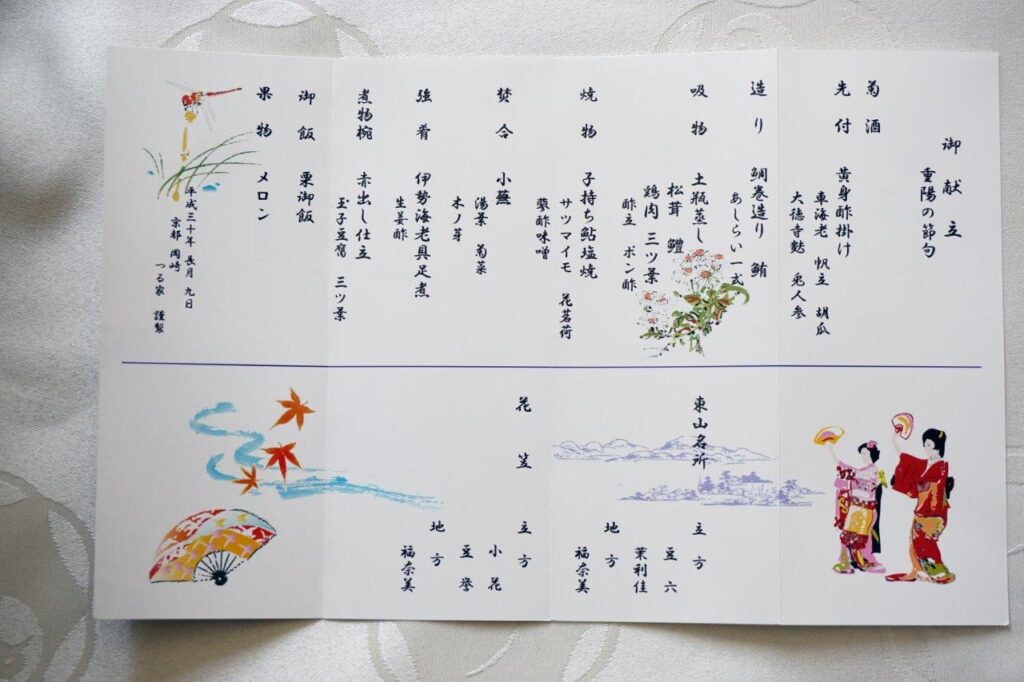 御献立
重陽の節句
菊酒
先付 黄身酢掛け
車海老 帆立 胡瓜
大徳寺麩 兎人参
造り 鯛巻造り 鮪
あしらい一式
吸物 土瓶蒸し
松茸 鱧
鶏肉 三ツ葉
酢立 ポン酢
焼物 子持ち鮎塩焼
サツマイモ 花茗荷
蓼酢味噌
焚合 小蕪
湯葉 菊菜
木ノ芽
強肴 伊勢海老具足煮
生姜酢
煮物椀 赤出し仕立
玉子豆腐 三ツ葉
御飯 栗御飯
果物 メロン
平成三十年 長月 九日
京都 岡崎
つる家 謹製
東山名所
立方
豆六
茉利佳
地方
福奈美
花笠
立方
小花
豆誉
地方
福奈美